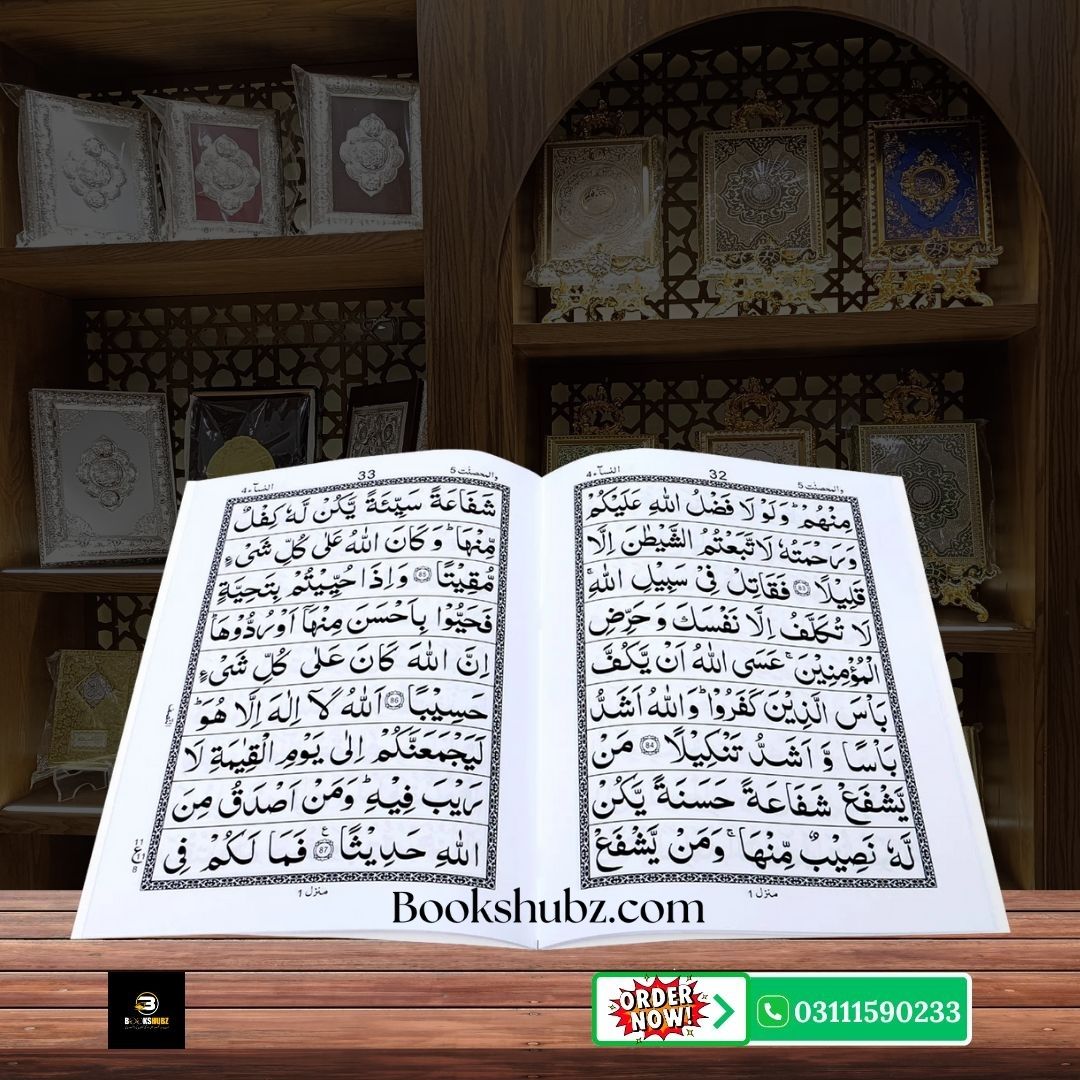 النسآء ٤
32
والمحصنٰت ٥
مِنْهُمْ ؕ وَلَوْ لَا فَضْلُ اللّٰهِ عَلَيْكُمْ
وَرَحْمَتُهٗ لَاتَّبَعْتُمُ الشَّيْطٰنَ اِلَّا
قَلِيْلًا ﴿83﴾ فَقَاتِلْ فِيْ سَبِيْلِ اللّٰهِ ۚ
لَا تُكَلَّفُ اِلَّا نَفْسَكَ وَ حَرِّضِ
الْمُؤْمِنِيْنَ ۚ عَسَى اللّٰهُ اَنْ يَّكُفَّ
بَاْسَ الَّذِيْنَ كَفَرُوْا ؕ وَاللّٰهُ اَشَدُّ
بَاْسًا وَّ اَشَدُّ تَنْكِيْلًا ﴿84﴾ مَنْ
يَّشْفَعْ شَفَاعَةً حَسَنَةً يَّكُنْ
لَّهٗ نَصِيْبٌ مِّنْهَا ۚ وَمَنْ يَّشْفَعْ
منزل ١
النسآء ٤
33
والمحصنٰت ٥
شَفَاعَةً سَيِّئَةً يَّكُنْ لَّهٗ كِفْلٌ
مِّنْهَا ؕ وَ كَانَ اللّٰهُ عَلٰى كُلِّ شَيْءٍ
مُّقِيْتًا ﴿85﴾ وَاِذَا حُيِّيْتُمْ بِتَحِيَّةٍ
فَحَيُّوْا بِاَحْسَنَ مِنْهَاۤ اَوْ رُدُّوْهَا ؕ
اِنَّ اللّٰهَ كَانَ عَلٰى كُلِّ شَيْءٍ
حَسِيْبًا ﴿86﴾ اَللّٰهُ لَاۤ اِلٰهَ اِلَّا هُوَ ؕ
لَيَجْمَعَنَّكُمْ اِلٰى يَوْمِ الْقِيٰمَةِ لَا
رَيْبَ فِيْهِ ؕ وَمَنْ اَصْدَقُ مِنَ
اللّٰهِ حَدِيْثًا ﴿87﴾ فَمَا لَكُمْ فِى
منزل ١
Bookshubz.com
BOOKSHUBZ
ORDER
NOW!
03111590233